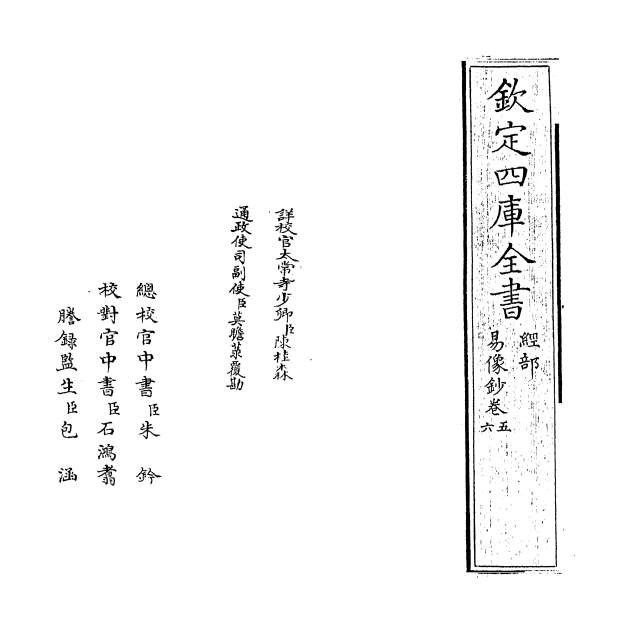 欽定四庫全書
經部
易像鈔卷五六
詳校官太常寺少卿臣陳桂森
通政使司副使臣莫瞻菉覆勘
總校官中書臣朱鈐
校對官中書臣石鴻翥
謄録監生臣包涵